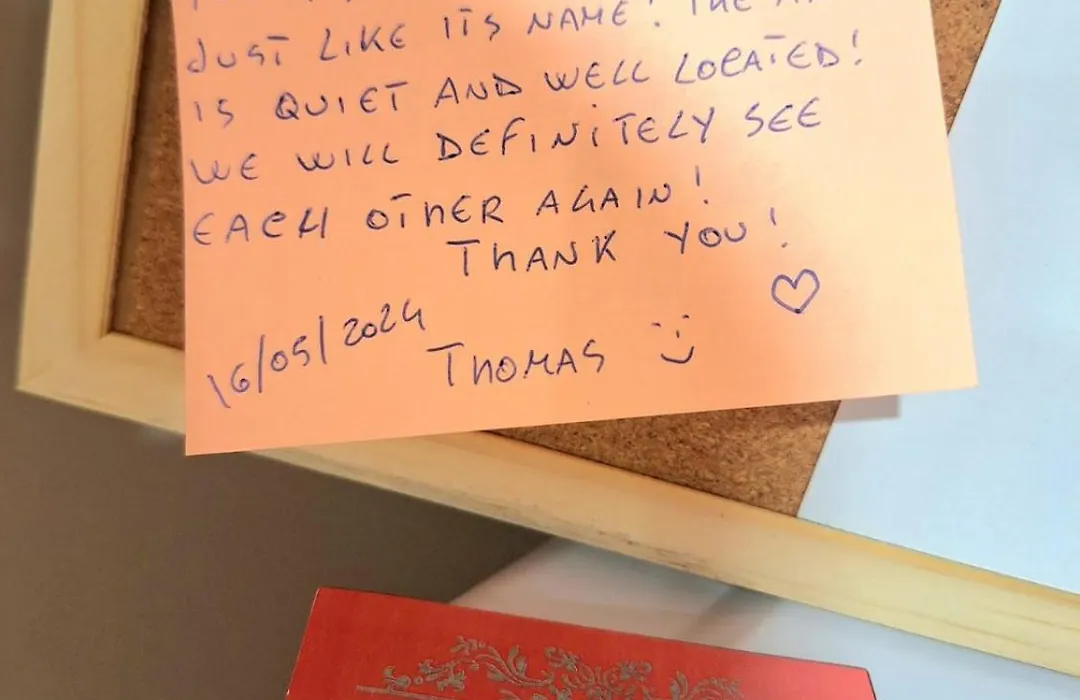 JUST LIKE ITS NAME! THE
IS QUIET AND WELL LOCATED!
WE WILL DEFINITELY SEE
EACH OTHER AGAIN!
THANK YOU!
16/05/2024
THOMAS